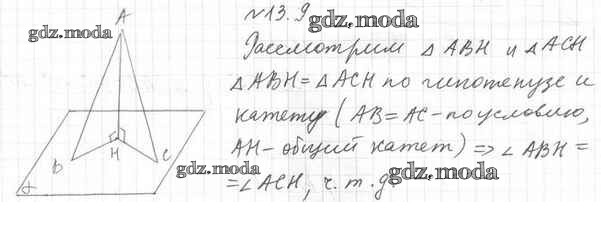 A
gdz.moda
B
H
C
α
gdz.moda
№13.9
gdz.moda
Рассмотрим △ ABH и △ACH
△ABH = △ACH по гипотенузе и
катету ( AB = AC - по условию,
AH - общий катет) => ∠ ABH =
= ∠ACH, ч. т. д.
gdz.moda